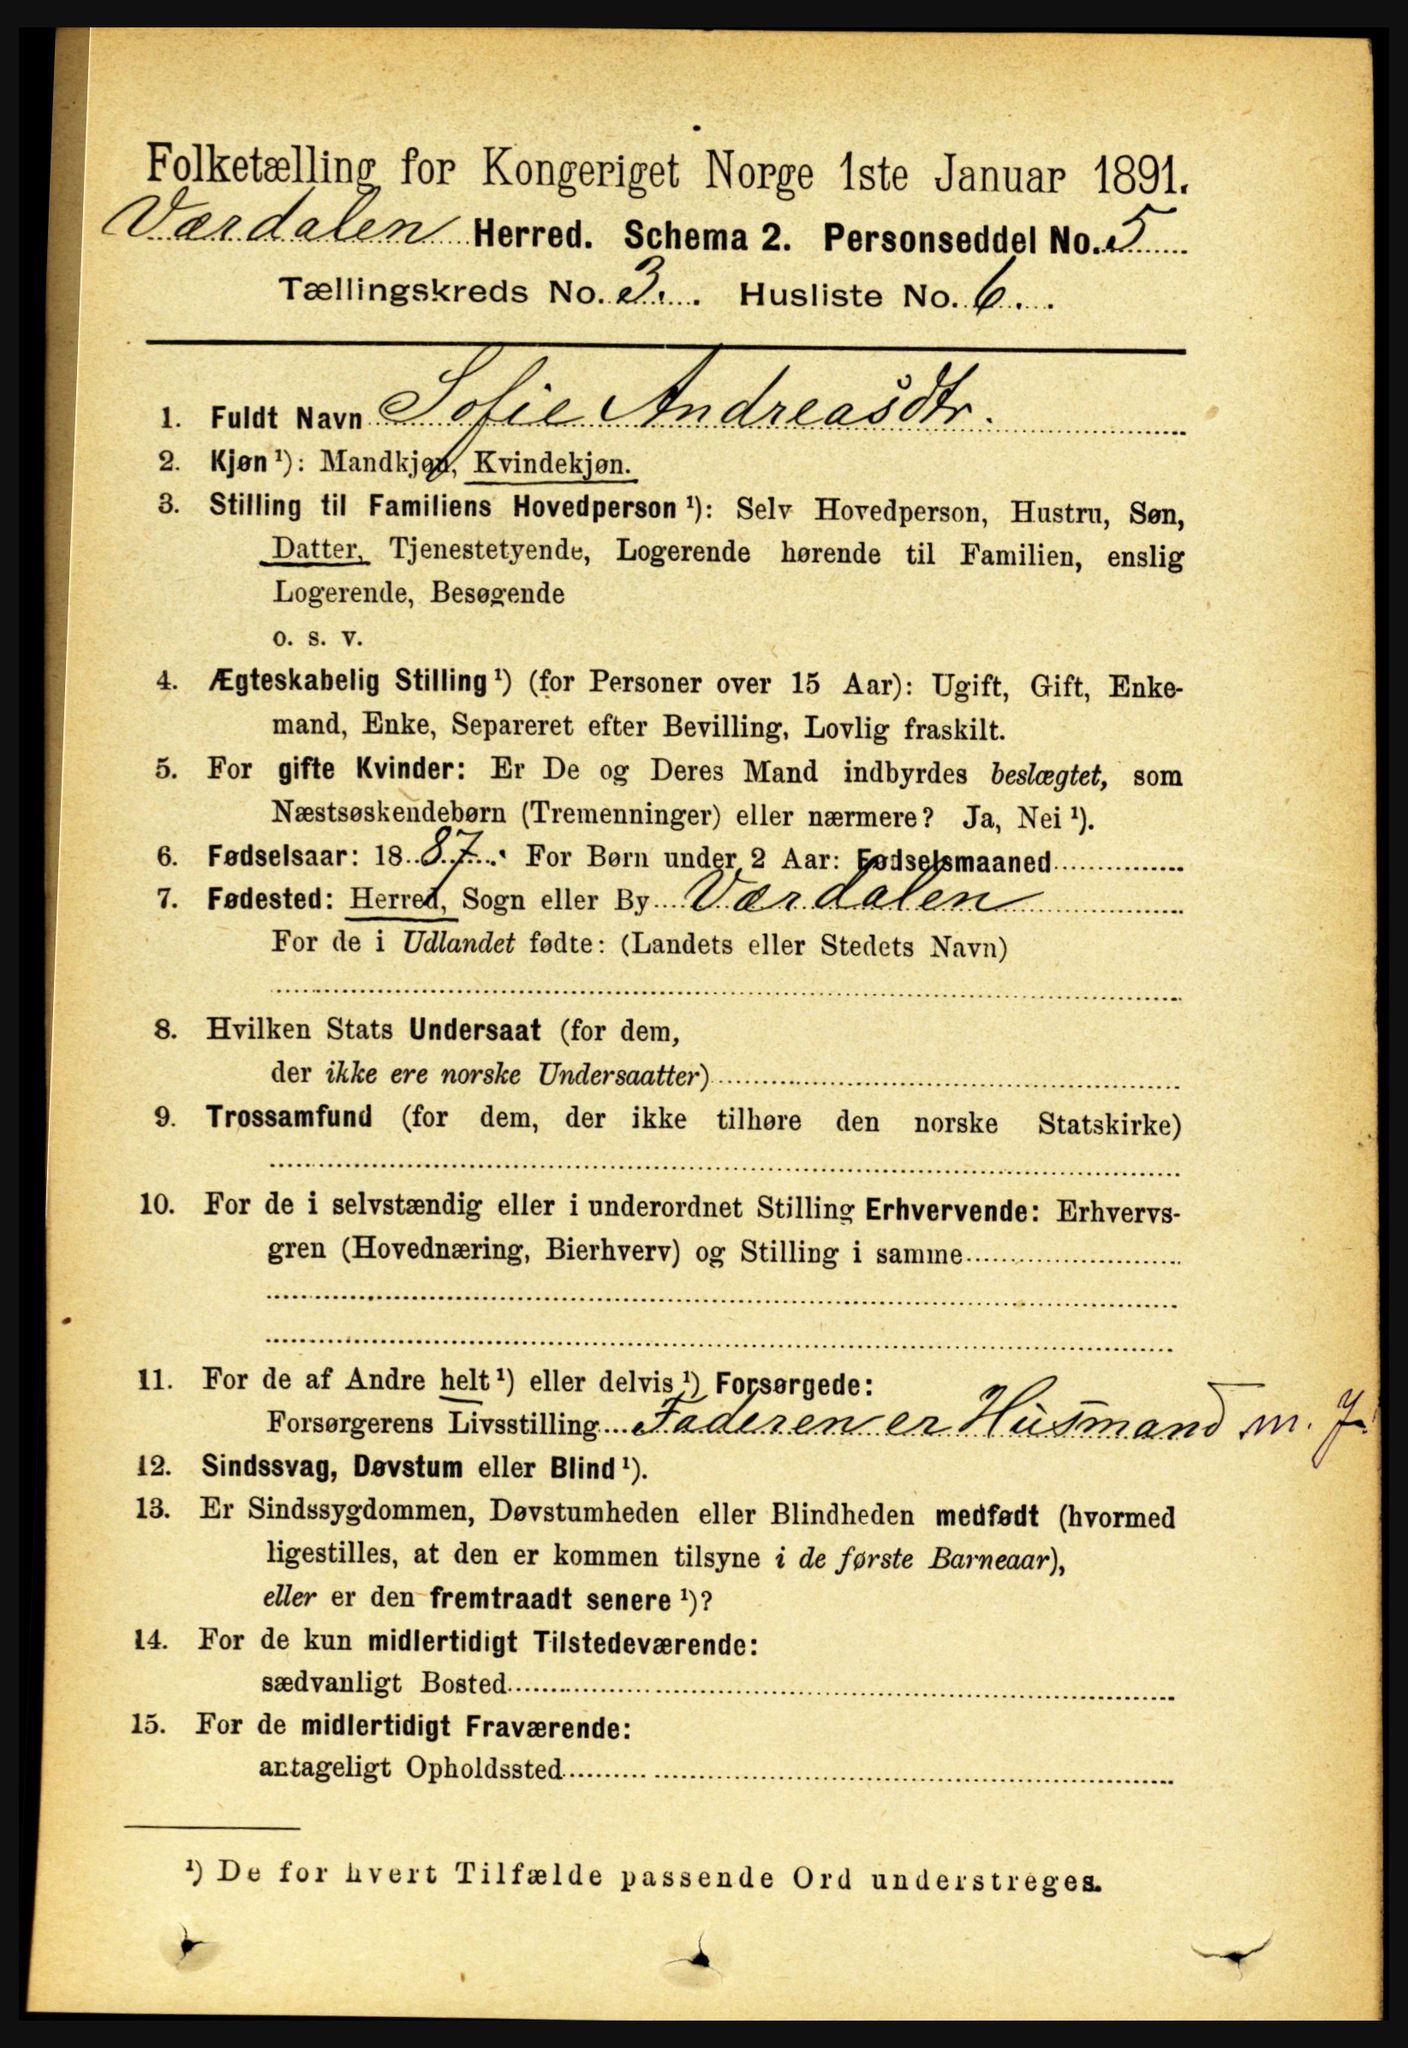 Folketælling for Kongeriget Norge 1ste Januar 1891.
Værdalen Herred. Schema 2. Personseddel No. 5
Tællingskreds No. 3. Husliste No. 6.
1. Fuldt Navn Sofie Andreasdtr.
2. Kjøn ¹): Mandkjøn, Kvindekjøn.
3. Stilling til Familiens Hovedperson ¹): Selv Hovedperson, Hustru, Søn,
Datter, Tjenestetyende, Logerende hørende til Familien, enslig
Logerende, Besøgende
o. s. v.
4. Ægteskabelig Stilling ¹) (for Personer over 15 Aar): Ugift, Gift, Enke-
mand, Enke, Separeret efter Bevilling, Lovlig fraskilt.
5. For gifte Kvinder: Er De og Deres Mand indbyrdes beslægtet, som
Næstsøskendebørn (Tremenninger) eller nærmere? Ja, Nei ¹).
6. Fødselsaar: 1887. For Børn under 2 Aar: Fødselsmaaned
7. Fødested: Herred, Sogn eller By Værdalen
For de i Udlandet fødte: (Landets eller Stedets Navn)
8. Hvilken Stats Undersaat (for dem,
der ikke ere norske Undersaatter)
9. Trossamfund (for dem, der ikke tilhøre den norske Statskirke)
10. For de i selvstændig eller i underordnet Stilling Erhvervende: Erhvervs-
gren (Hovednæring, Bierhverv) og Stilling i samme
11. For de af Andre helt ¹) eller delvis ¹) Forsørgede:
Forsørgerens Livsstilling Faderen er Husmand m. J.
12. Sindssvag, Døvstum eller Blind ¹).
13. Er Sindssygdommen, Døvstumheden eller Blindheden medfødt (hvormed
ligestilles, at den er kommen tilsyne i de første Barneaar),
eller er den fremtraadt senere ¹)?
14. For de kun midlertidigt Tilstedeværende:
sædvanligt Bosted
15. For de midlertidigt Fraværende:
antageligt Opholdssted
¹) De for hvert Tilfælde passende Ord understreges.